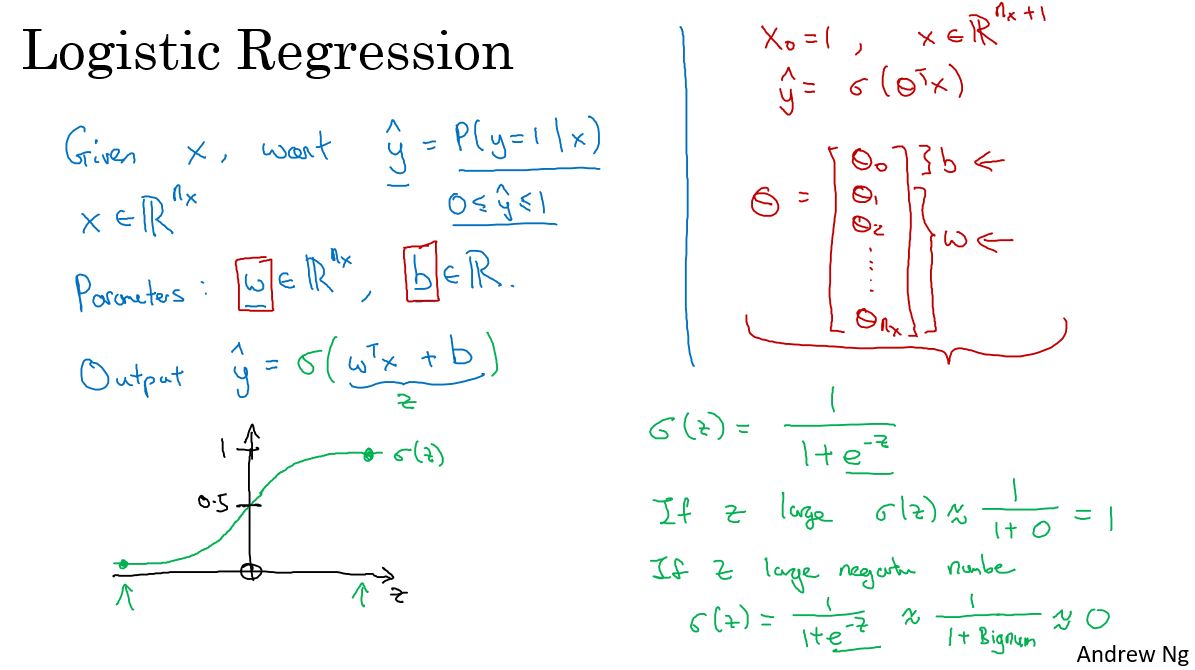 Logistic Regression
Given x, want ŷ = P(y=1|x)
x ∈ ℝⁿˣ 0 ≤ ŷ ≤ 1
Parameters: w ∈ ℝⁿˣ, b ∈ ℝ.
Output ŷ = σ(wᵀx + b)
z
1
σ(z)
0.5
z
x₀ = 1, x ∈ ℝⁿˣ⁺¹
ŷ = σ(θᵀx)
θ = [θ₀ θ₁ θ₂ ⋮ θₙₓ]
} b ←
} w ←
σ(z) = 1/(1+e⁻ᶻ)
If z large σ(z) ≈ 1/(1+0) = 1
If z large negative number
σ(z) = 1/(1+e⁻ᶻ) ≈ 1/(1+Bignum) ≈ 0
Andrew Ng